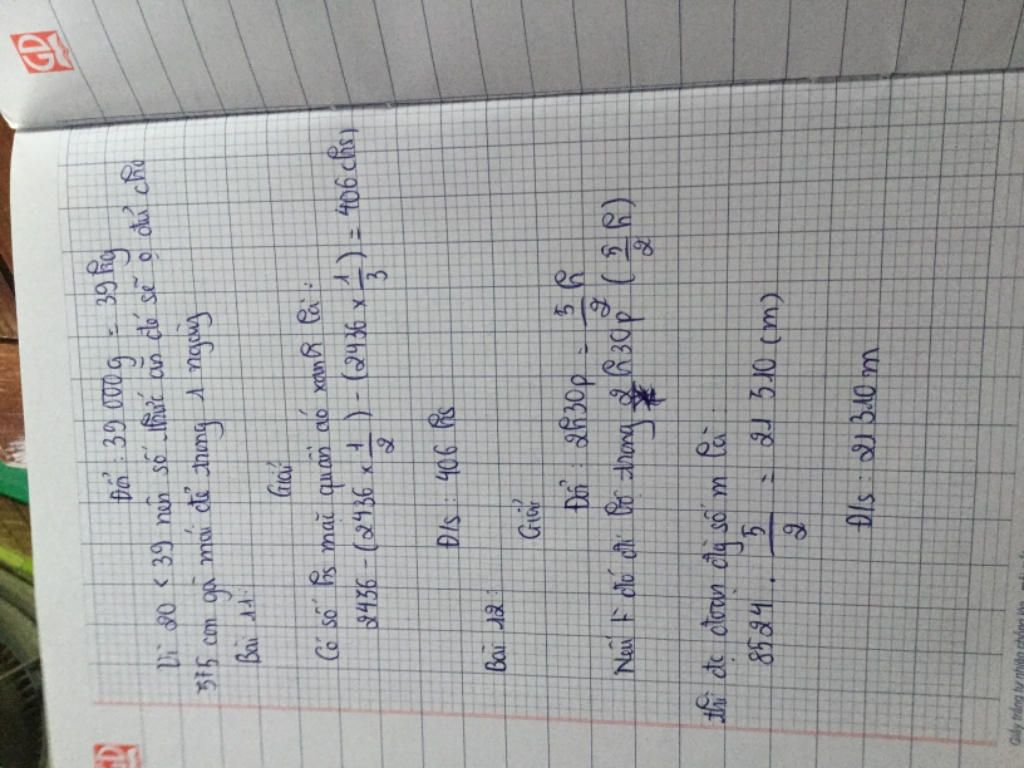 Đổi : 39 000g = 39kg
Vì 20 < 39 nên số thức ăn đó sẽ o đủ cho
375 con gà mái đẻ trong 1 ngày
Bài 11:
Giải
Có số hs mặc quần áo xanh là :
2436 - (2436 x 1/2) - (2436 x 1/3) = 406 (hs)
Đ/s : 406 hs
Bài 12:
Giải
Đổi : 2h30p = 5/2 h
Nếu F đó đi bộ trong 2h30p (5/2 h)
thì đc đoạn đg số m là :
8524 . 5/2 = 21 310 (m)
Đ/s : 21310 m
GD
GD